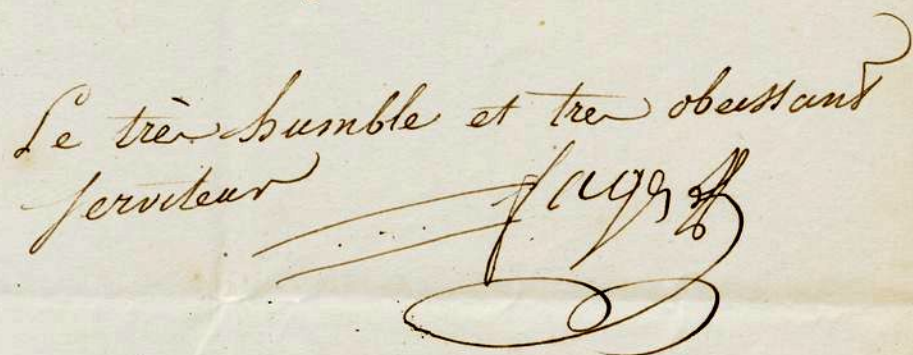 Le très humble et tres obeissant
serviteur